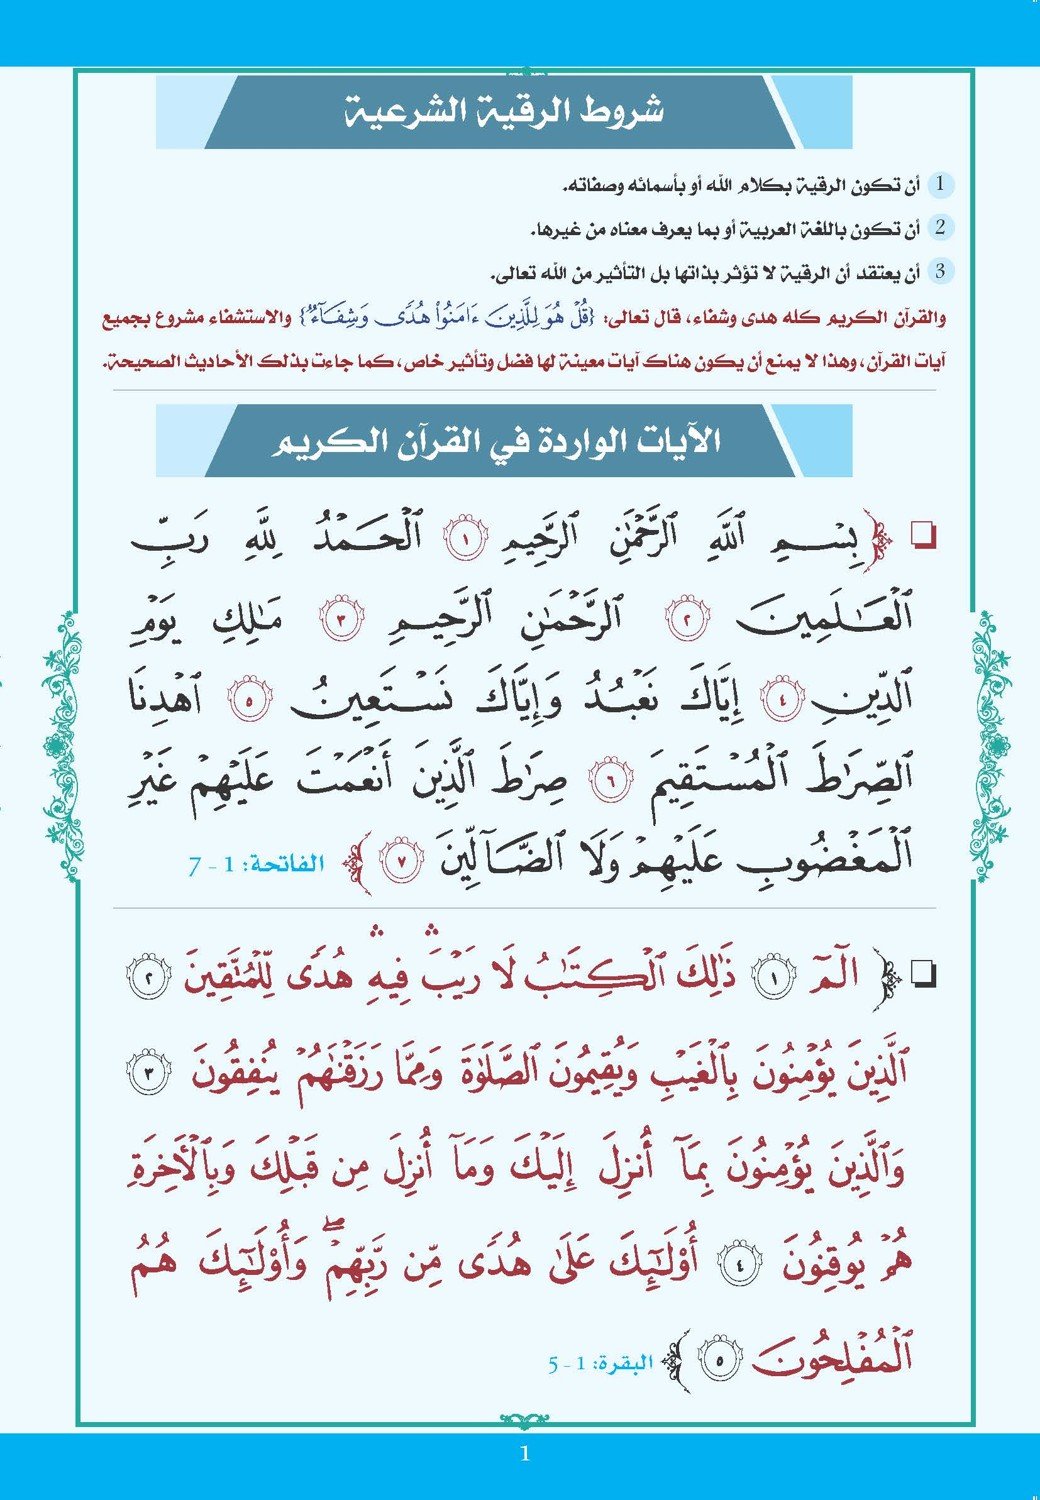 شروط الرقية الشرعية
1 أن تكون الرقية بكلام الله أو بأسمائه وصفاته.
2 أن تكون باللغة العربية أو بما يعرف معناه من غيرها.
3 أن يعتقد أن الرقية لا تؤثر بذاتها بل التأثير من الله تعالى.
والقرآن الكريم كله هدى وشفاء، قال تعالى: {قُلْ هُوَ لِلَّذِينَ ءَامَنُوا۟ هُدًى وَشِفَآءٌ} والاستشفاء مشروع بجميع
آيات القرآن، وهذا لا يمنع أن يكون هناك آيات معينة لها فضل وتأثير خاص، كما جاءت بذلك الأحاديث الصحيحة.
الآيات الواردة في القرآن الكريم
﴿بِسْمِ ٱللَّهِ ٱلرَّحْمَٰنِ ٱلرَّحِيمِ ١ ٱلْحَمْدُ لِلَّهِ رَبِّ
ٱلْعَٰلَمِينَ ٢ ٱلرَّحْمَٰنِ ٱلرَّحِيمِ ٣ مَٰلِكِ يَوْمِ
ٱلدِّينِ ٤ إِيَّاكَ نَعْبُدُ وَإِيَّاكَ نَسْتَعِينُ ٥ ٱهْدِنَا
ٱلصِّرَٰطَ ٱلْمُسْتَقِيمَ ٦ صِرَٰطَ ٱلَّذِينَ أَنْعَمْتَ عَلَيْهِمْ غَيْرِ
ٱلْمَغْضُوبِ عَلَيْهِمْ وَلَا ٱلضَّآلِّينَ ٧﴾ الفاتحة: 1 - 7
﴿الٓمٓ ١ ذَٰلِكَ ٱلْكِتَٰبُ لَا رَيْبَ ۛ فِيهِ ۛ هُدًى لِّلْمُتَّقِينَ ٢
ٱلَّذِينَ يُؤْمِنُونَ بِٱلْغَيْبِ وَيُقِيمُونَ ٱلصَّلَوٰةَ وَمِمَّا رَزَقْنَٰهُمْ يُنفِقُونَ ٣
وَٱلَّذِينَ يُؤْمِنُونَ بِمَآ أُنزِلَ إِلَيْكَ وَمَآ أُنزِلَ مِن قَبْلِكَ وَبِٱلْأَخِرَةِ
هُمْ يُوقِنُونَ ٤ أُو۟لَٰٓئِكَ عَلَىٰ هُدًى مِّن رَّبِّهِمْ ۖ وَأُو۟لَٰٓئِكَ هُمُ
ٱلْمُفْلِحُونَ ٥﴾ البقرة: 1 - 5
1